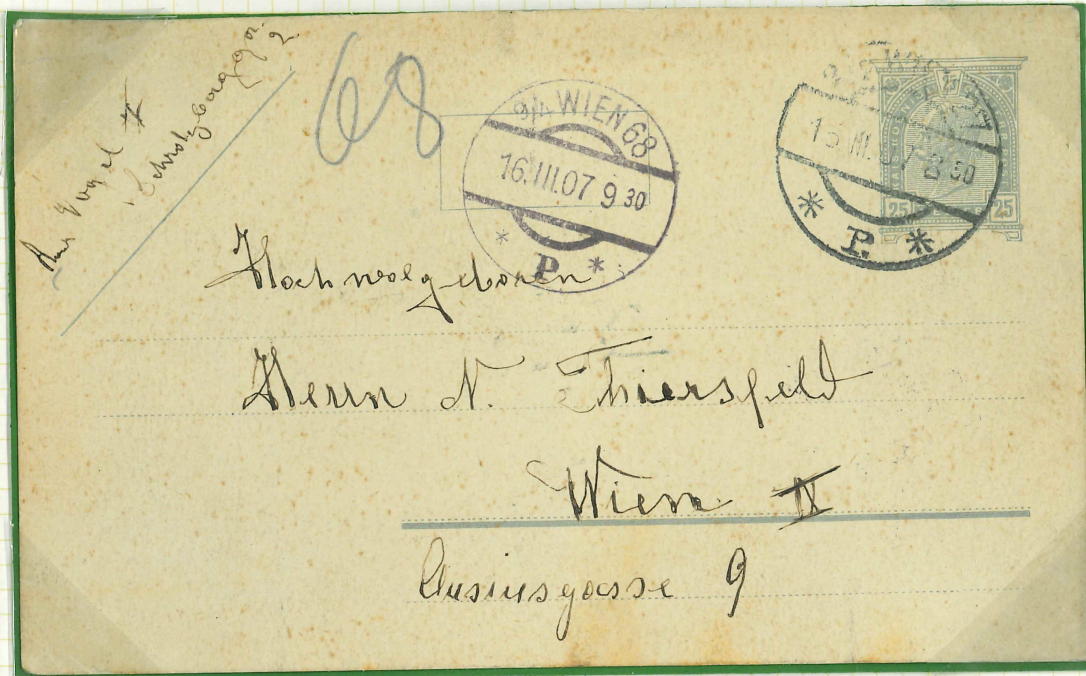 Vogel
68
9/4 WIEN 68
16.III.07 9 30
P
15.III.07 8 30
P.
25
25 25
Hochwolgeboren
Herrn N. Thiersfeld
Wien IX
Clusiusgasse 9